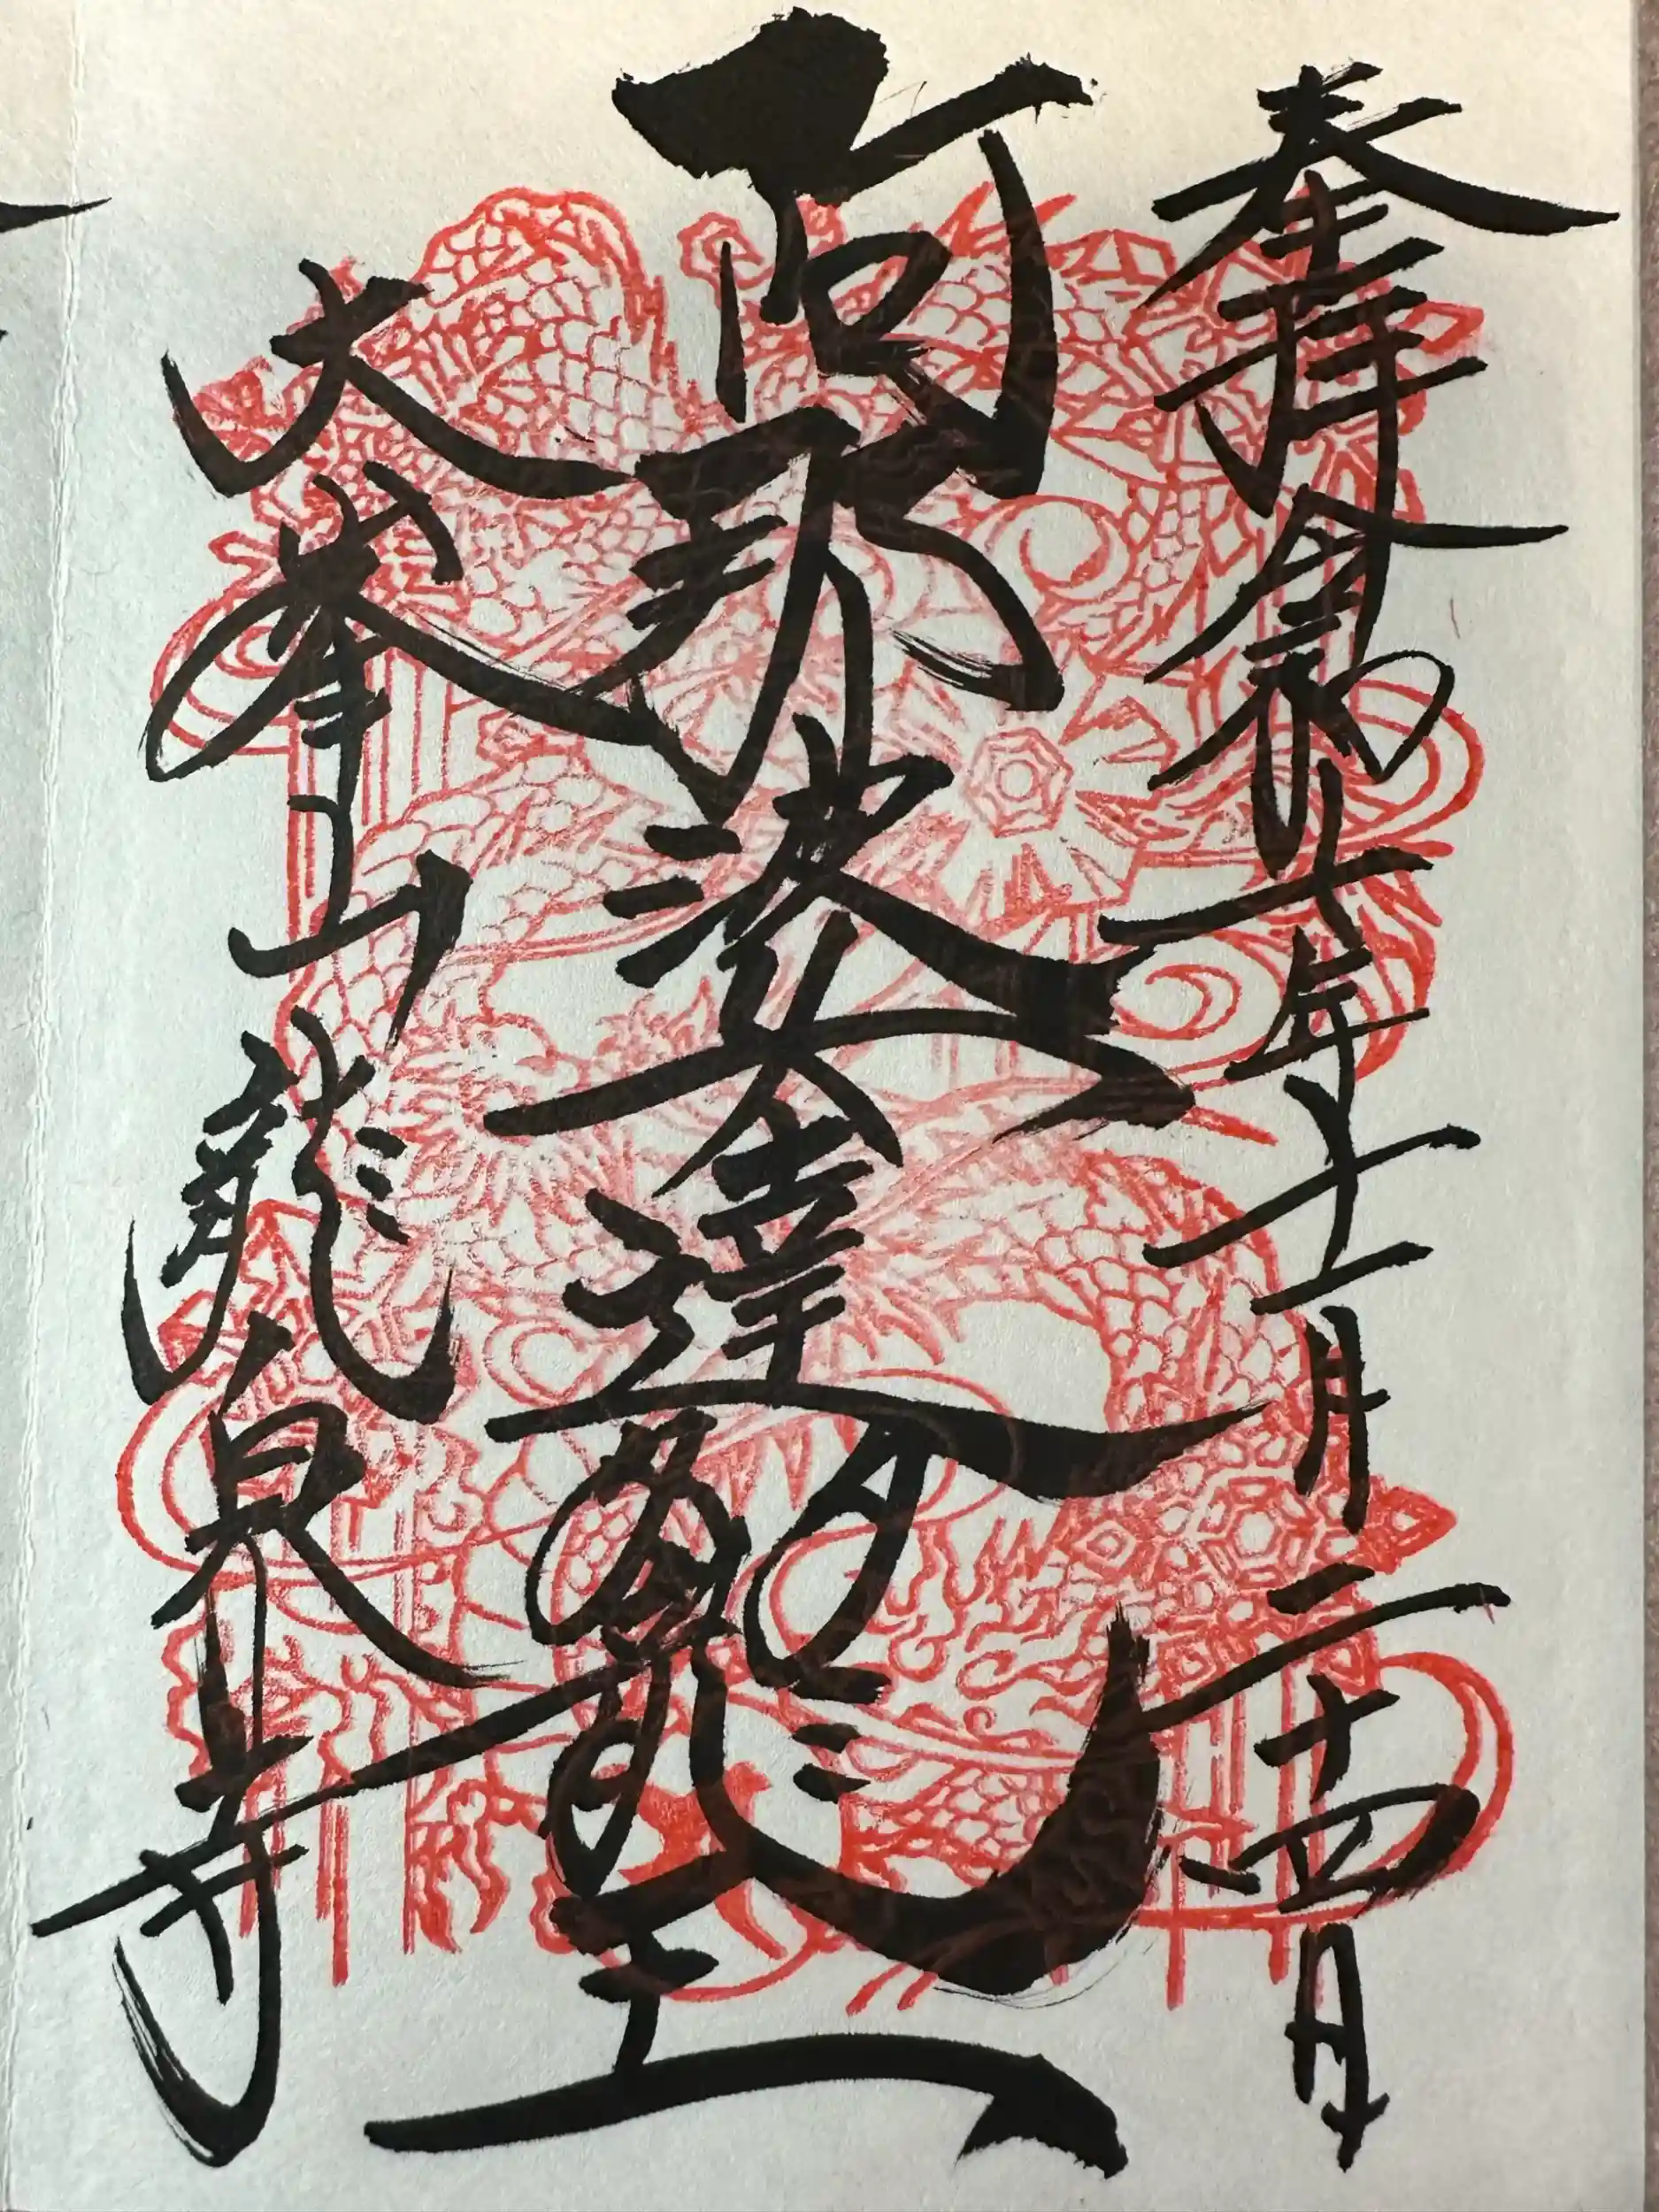 奉拝 令和七年十一月二十四日
阿那婆達多龍王
大峯山 龍泉寺